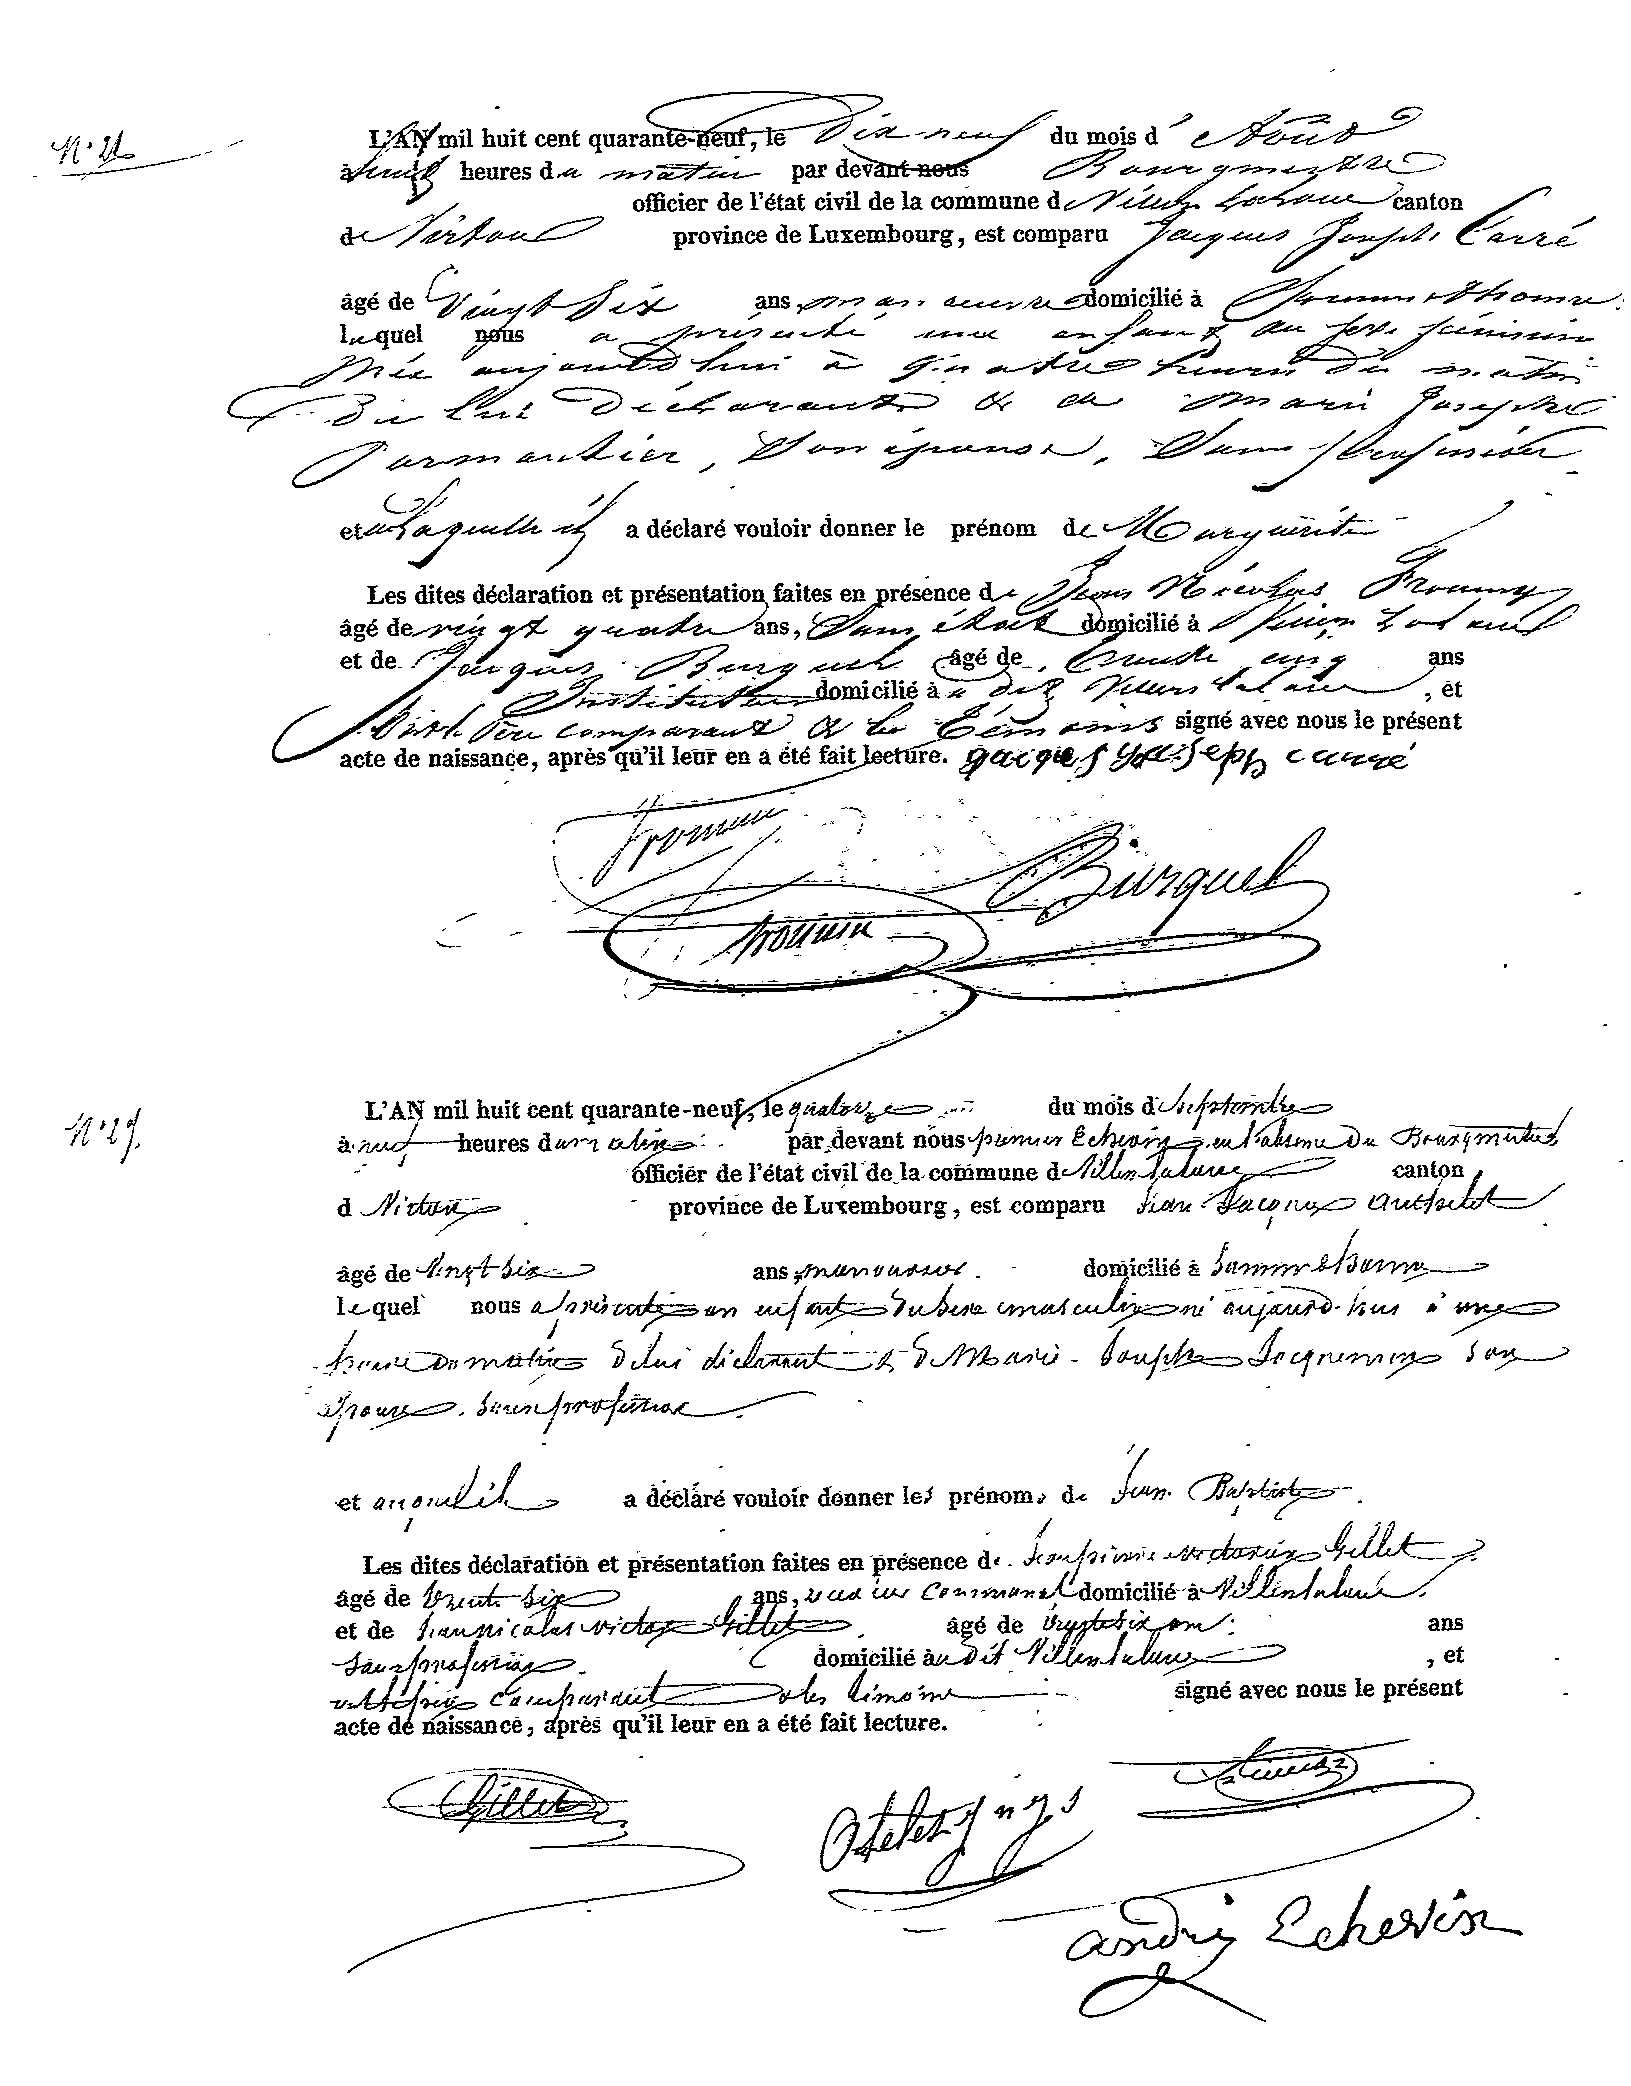 L'AN mil huit cent quarante-neuf, le Dix neuf du mois d' Août
à huit heures du matin par devant nous Bourgmestre
officier de l'état civil de la commune de Villers Laloue canton
de Virton province de Luxembourg, est comparu Jacques Joseph Carré
âgé de Vingt Six ans, manœuvre domicilié à Sommethonne
lequel nous a présenté une enfant du sexe féminin
Née aujourd'hui à quatre heures du matin
De lui Déclarant & de Marie Joseph
Parmentier, Son épouse, Sans profession
et a Laquelle il a déclaré vouloir donner le prénom de Marguerite
Les dites déclaration et présentation faites en présence de Jean Nicolas
âgé de vingt quatre ans, Sans état domicilié à Villers Laloue
et de Jacques Burquel âgé de trente cinq ans
Instituteur domicilié à u dit Villers Laloue, et
Dist le Père comparant & les Témoins signé avec nous le présent
acte de naissance, après qu'il leur en a été fait lecture. jacques joseph carré
Burquel
N° 25.
L'AN mil huit cent quarante-neuf, le quatorze du mois d septembre
à neuf heures du matin par devant nous premier Echevin en l'absence du Bourgmestre
officier de l'état civil de la commune de Villers Laloue canton
d Virton province de Luxembourg, est comparu Jean Jacques authelet
âgé de Vingt six ans, manœuvre domicilié à Sommethonne
lequel nous a présenté un enfant du sexe masculin né aujourd'hui à une
heure du matin de lui déclarant & de Marie Joseph Jacquemin son
épouse, sans profession
et auquel il a déclaré vouloir donner les prénoms de Jean Baptiste
Les dites déclaration et présentation faites en présence de Gillet
âgé de trente six ans, receveur communal domicilié à Villers Laloue.
et de Jean Nicolas Victor Gillet âgé de vingt six ans ans
sans profession domicilié à u dit Villers Laloue, et
comparant & les témoins signé avec nous le présent
acte de naissance, après qu'il leur en a été fait lecture.
Gillet
andré Echevin